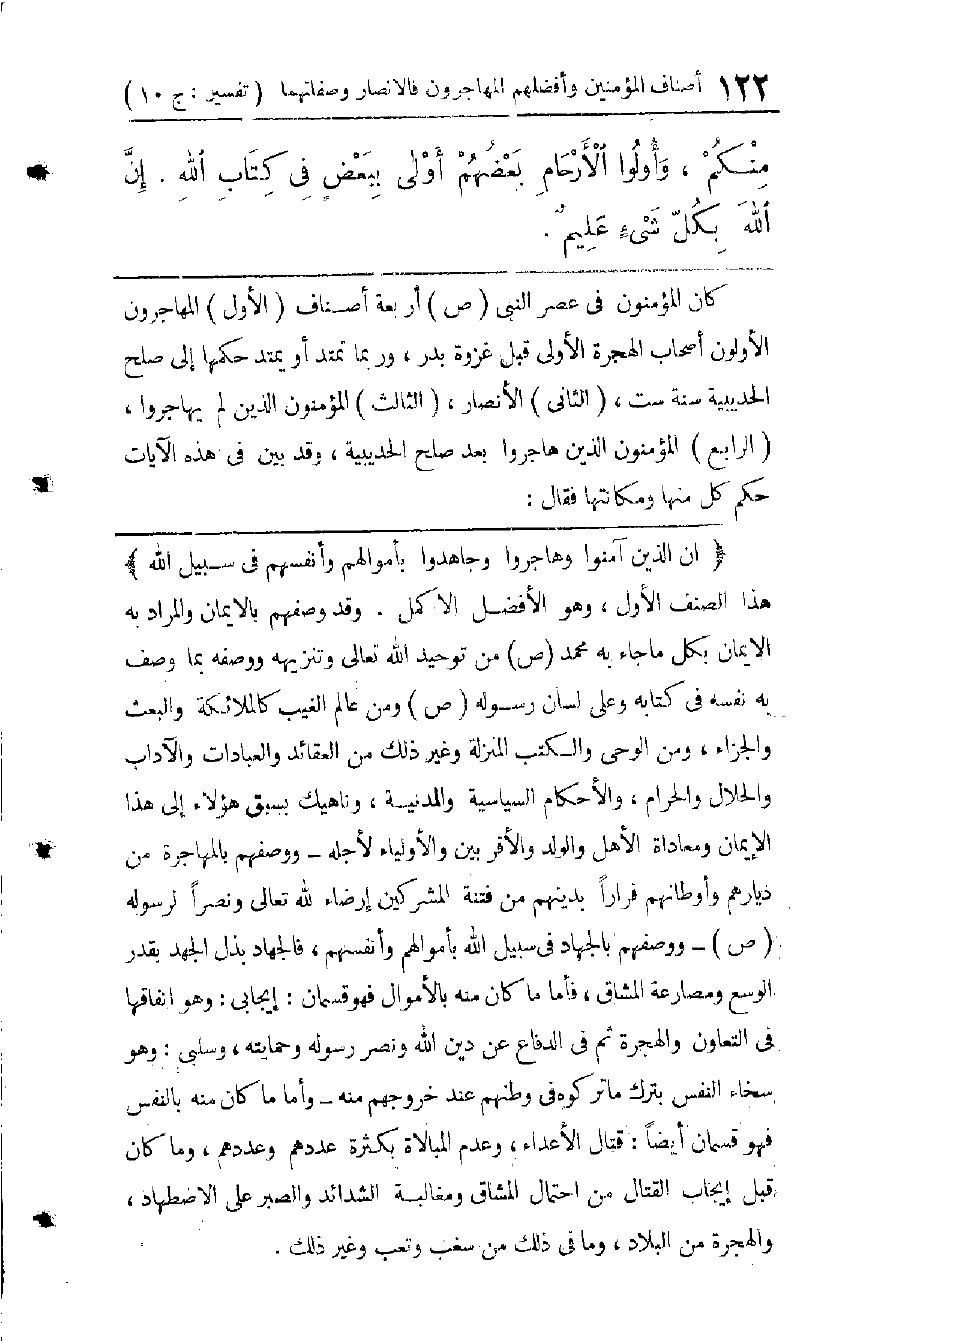 ١٢٢ أصناف المؤمنين وأفضلهم المهاجرون فالانصار وصفاتهما ( تفسير : ج ١٠ )
مِنْكُمْ ، وَأُولُوا ٱلْأَرْحَامِ بَعْضُهُمْ أَوْلَى بِبَعْضٍ فِى كِتَابِ ٱللهِ . إِنَّ
ٱللهَ بِكُلِّ شَىْءٍ عَلِيمٌ .
كان المؤمنون فى عصر النبى ( ص ) أربعة أصناف ( الأول ) المهاجرون
الأولون أصحاب الهجرة الأولى قبل غزوة بدر ، وربما تمتد أو يمتد حكمها إلى صلح
الحديبية سنة ست ، ( الثانى ) الأنصار ، ( الثالث ) المؤمنون الذين لم يهاجروا ،
( الرابع ) المؤمنون الذين هاجروا بعد صلح الحديبية ، وقد بين فى هذه الآيات
حكم كل منها ومكانتها فقال :
﴿ ان الذين آمنوا وهاجروا وجاهدوا بأموالهم وأنفسهم فى سبيل الله ﴾
هذا الصنف الأول ، وهو الأفضل الاكمل . وقد وصفهم بالايمان والمراد به
الايمان بكل ماجاء به محمد (ص) من توحيد الله تعالى وتنزيهه ووصفه بما وصف
به نفسه فى كتابه وعلى لسان رسوله ( ص ) ومن عالم الغيب كالملائكة والبعث
والجزاء ، ومن الوحى والكتب المنزلة وغير ذلك من العقائد والعبادات والآداب
والحلال والحرام ، والأحكام السياسية والمدنية ، وناهيك بسبق هؤلاء إلى هذا
الإيمان ومعاداة الأهل والولد والأقربين والأولياء لأجله ــ ووصفهم بالمهاجرة من
ديارهم وأوطانهم فراراً بدينهم من فتنة المشركين إرضاء لله تعالى ونصراً لرسوله
( ص ) ــ ووصفهم بالجهاد فى سبيل الله بأموالهم وأنفسهم ، فالجهاد بذل الجهد بقدر
الوسع ومصارعة المشاق ، فأما ما كان منه بالأموال فهو قسمان : إيجابى : وهو انفاقها
فى التعاون والهجرة ثم فى الدفاع عن دين الله ونصر رسوله وحمايته ، وسلبى : وهو
سخاء النفس بترك ماتركوه فى وطنهم عند خروجهم منه ــ وأما ما كان منه بالنفس
فهو قسمان أيضاً : قتال الأعداء ، وعدم المبالاة بكثرة عددهم وعددهم ، وما كان
قبل إيجاب القتال من احتمال المشاق ومغالبة الشدائد والصبر على الاضطهاد ،
والهجرة من البلاد ، وما فى ذلك من سغب وتعب وغير ذلك .